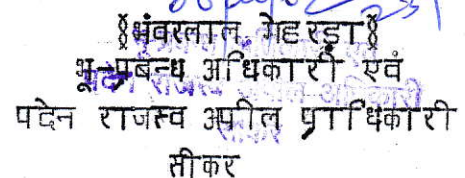 (भंवरलाल मेहरड़ा)
भू-प्रबन्ध अधिकारी एवं
पदेन राजस्व अपील प्राधिकारी
सीकर